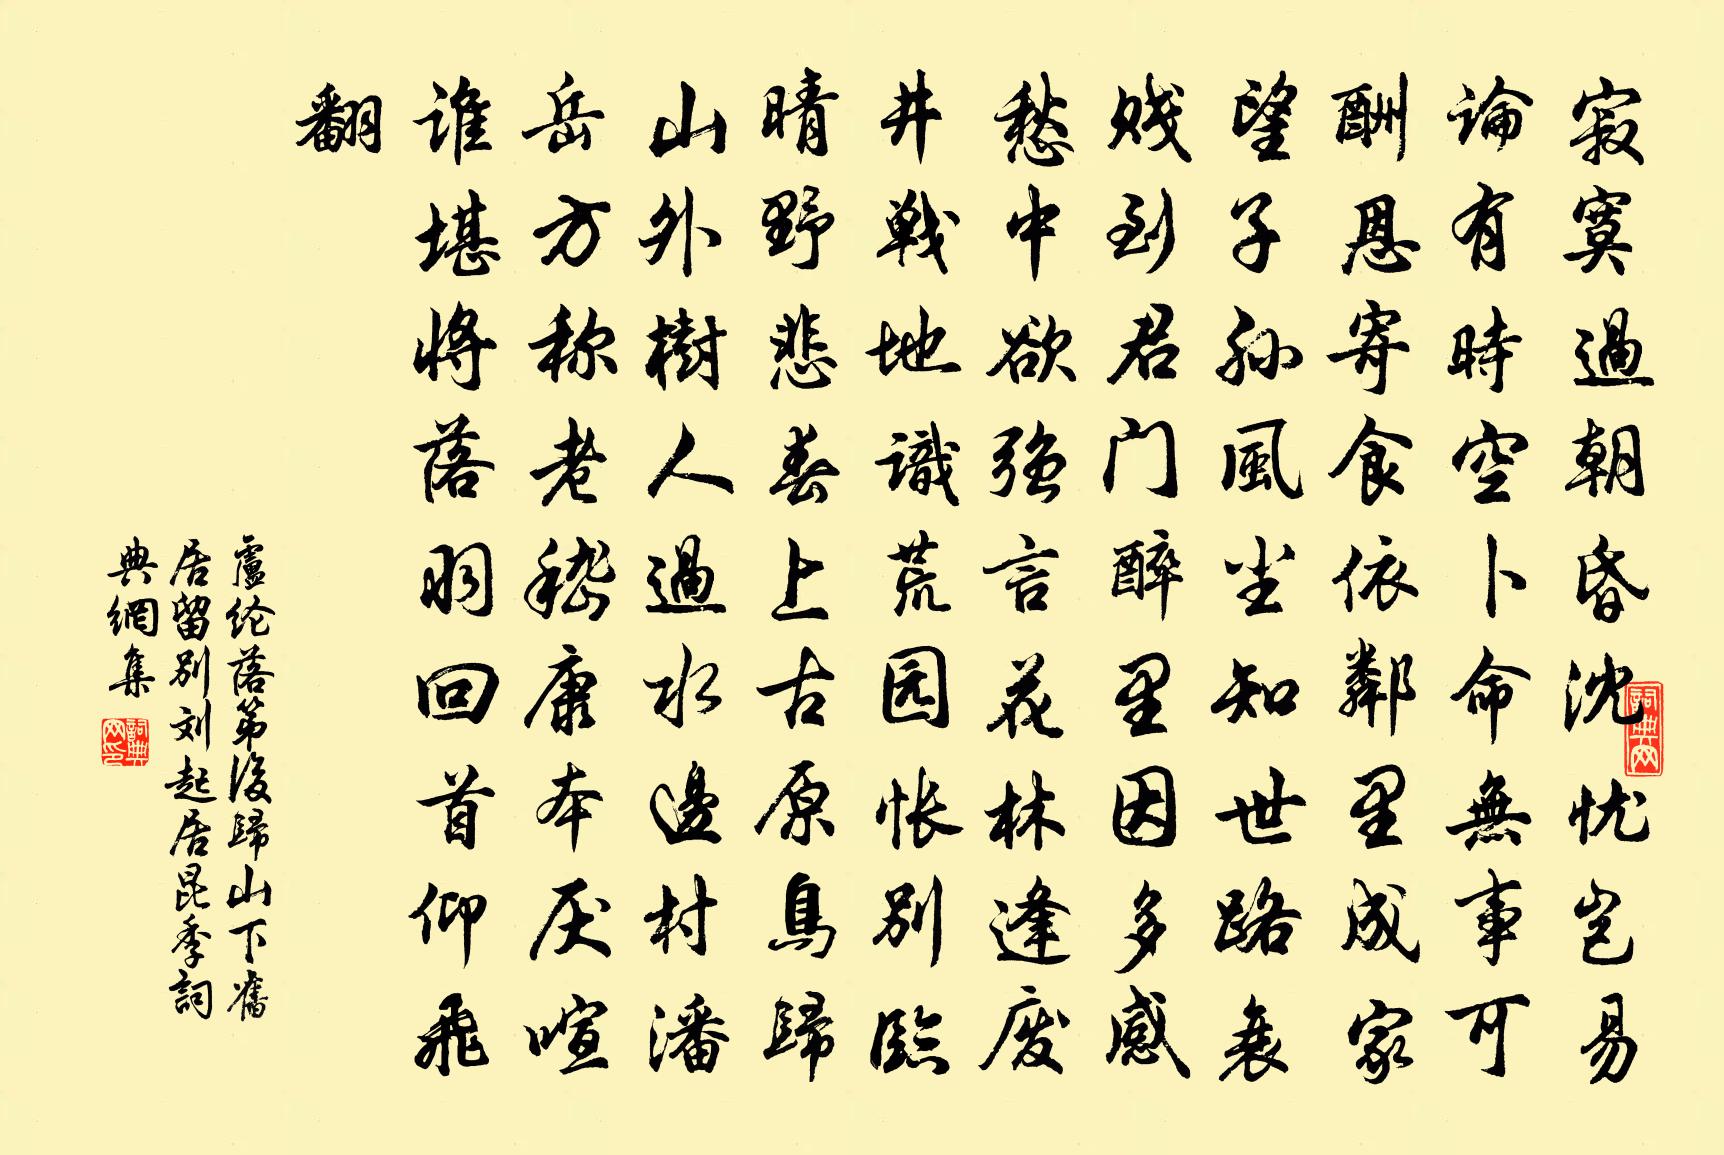 寂寞過朝昏沈忧岂易
論有時空卜命無事可
酬恩寄食依鄰里成家
望子孙風尘知世路衰
贱到君门醉里因多感
愁中欲强言花林逢废
井戰地識荒园怅别臨
晴野悲春上古原鳥歸
山外樹人過水邊村潘
岳方称老嵇康本厌喧
谁堪将落羽回首仰飛
翻
盧纶落第後歸山下舊
居留别刘起居昆季詞
典網集
詞典网
詞典网印